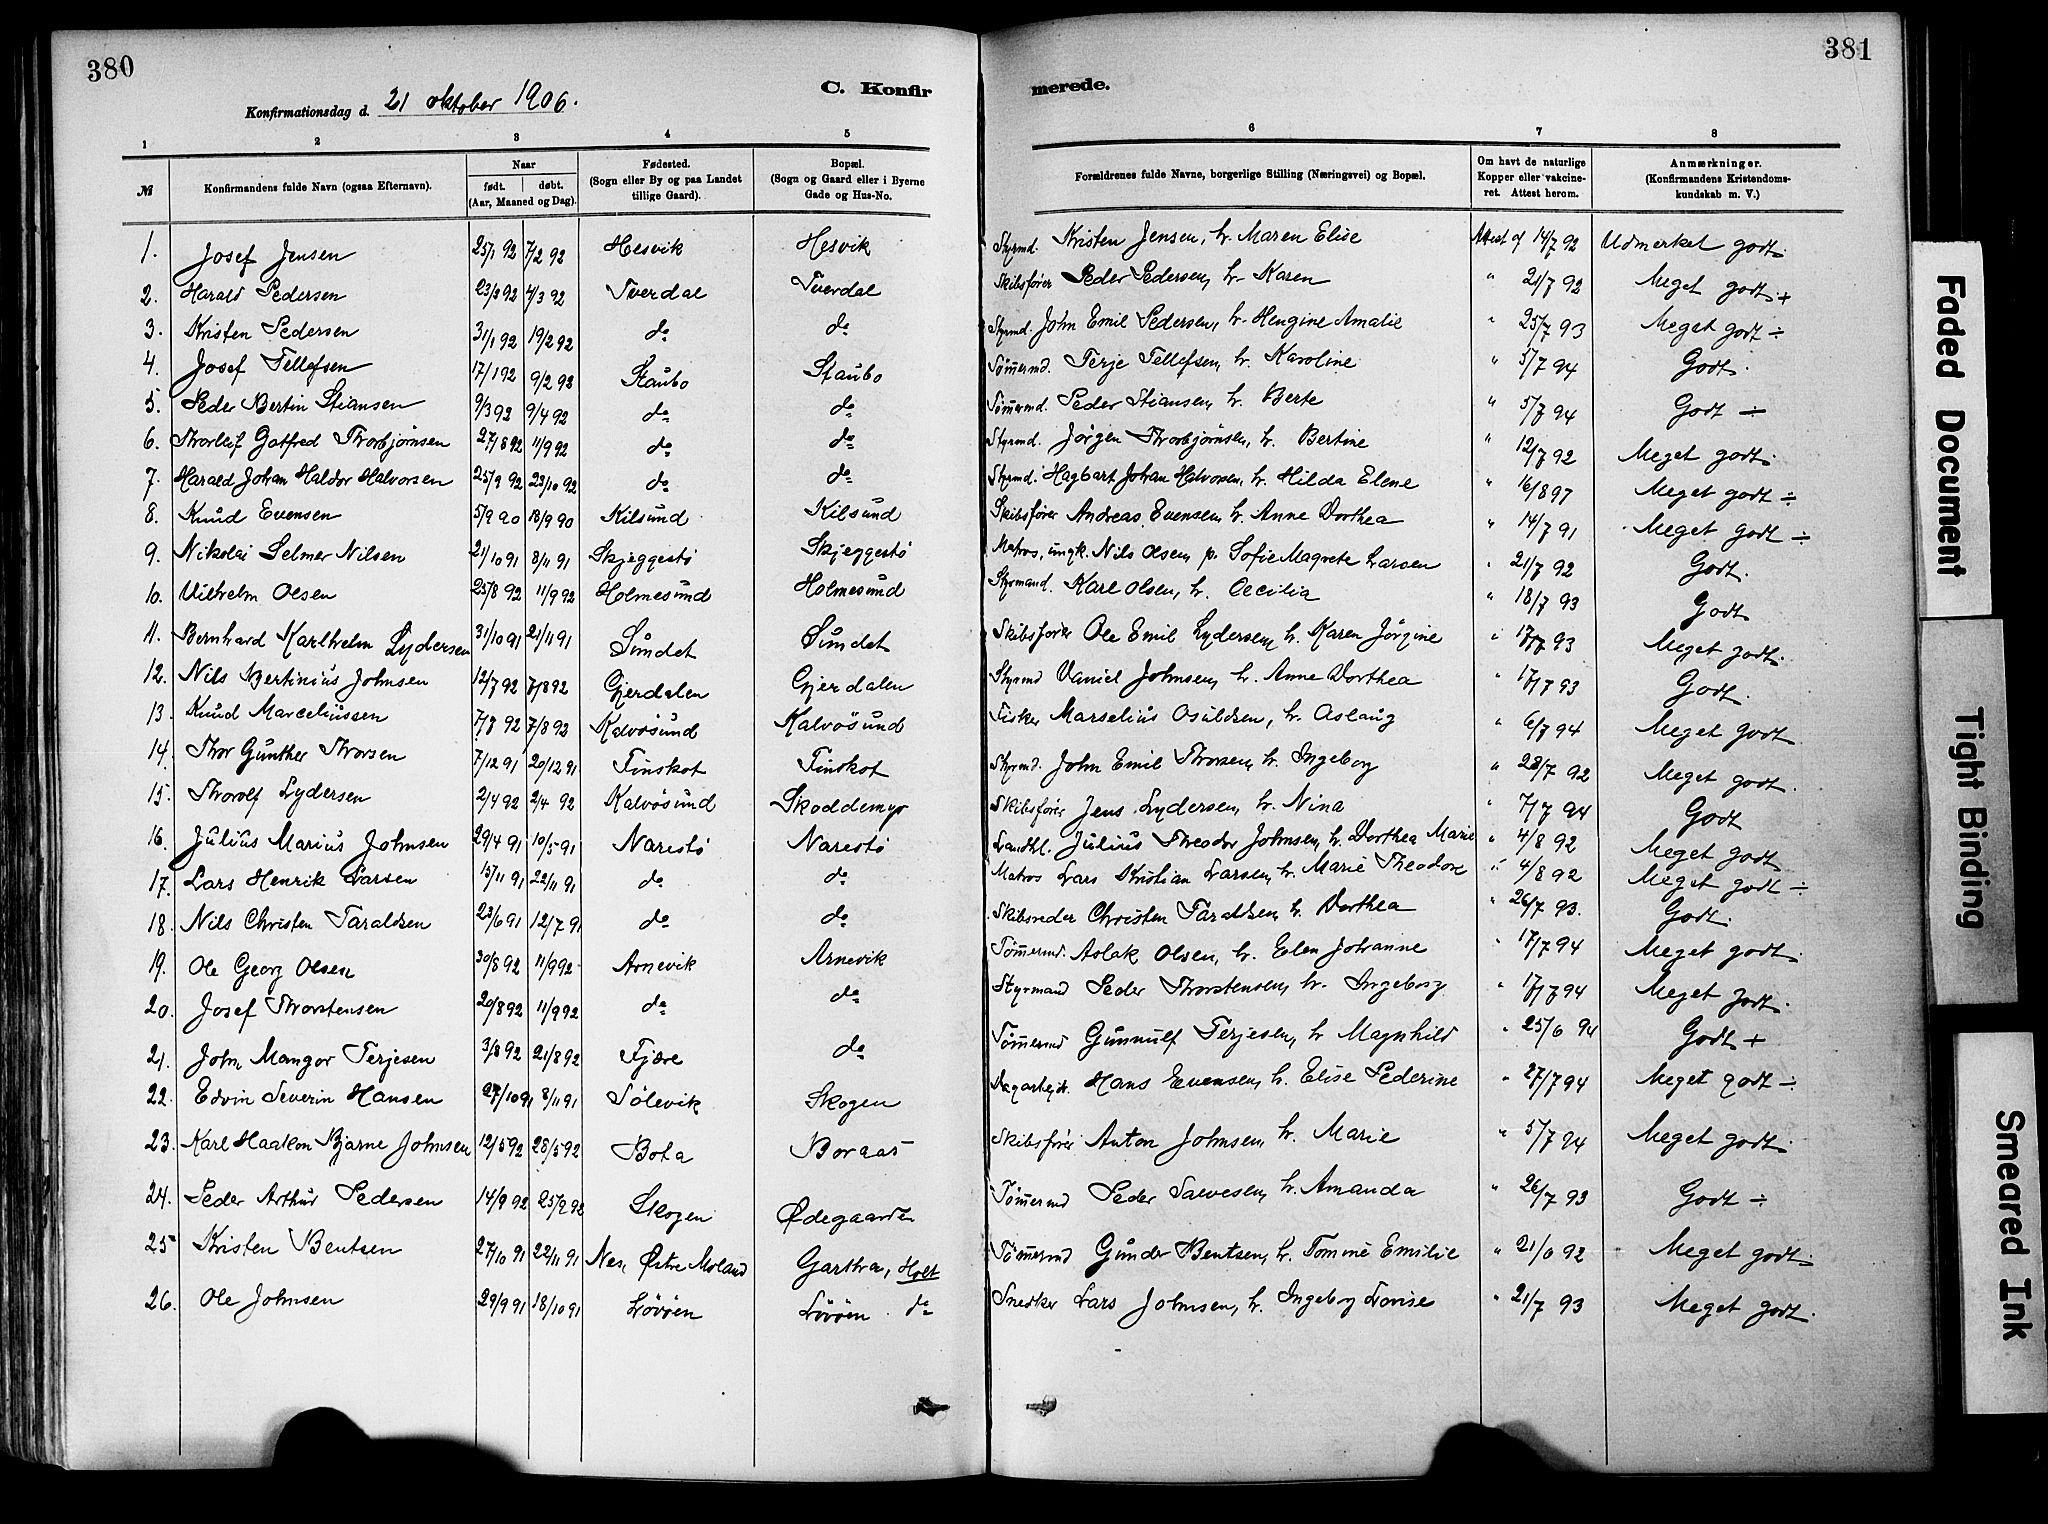 380
381
Konfirmationsdag d. 21 oktober 1906.
C. Konfir
merede.
1 2 3 4 5 6 7 8
№ Konfirmandens fulde Navn (ogsaa Efternavn). Naar født. døbt. (Aar, Maaned og Dag). Fødested. (Sogn eller By og paa Landet tillige Gaard). Bopæl. (Sogn og Gaard eller i Byerne Gade og Hus-No. Forældrenes fulde Navne, borgerlige Stilling (Næringsvei) og Bopæl. Om havt de naturlige Kopper eller vakcineret. Attest herom. Anmærkninger. (Konfirmandens Kristendomskundskab m. V.)
1. Josef Jensen 25/1 92 7/2 92 Hesvik Hesvik Styrmd. Kristen Jensen, h. Maren Elise Attest af 14/7 92 Udmerket godt.
2. Harald Pedersen 23/2 92 4/3 92 Tverdal Tverdal Skibsfører Peder Pedersen, h. Karen " 21/7 92 Meget godt +
3. Kristen Pedersen 31/1 92 19/2 92 do do Styrmd. John Emil Pedersen, h. Hengine Amalie " 25/7 93 Meget godt ÷
4. Josef Tellefsen 17/1 92 9/2 92 Staubo Staubo Tømermd. Terje Tellefsen, h. Karoline " 5/7 94 Godt.
5. Peder Bertin Stiansen 9/3 92 9/4 92 do do Tømermd. Peder Stiansen, h. Berte " 5/7 94 Godt ÷
6. Thorleif Gotfred Thorbjørnsen 27/8 92 11/9 92 do do Styrmd. Jørgen Thorbjørnsen, h. Bertine " 12/7 92 Meget godt.
7. Harald Johan Haldor Halvorsen 25/9 92 23/10 92 do do Styrmd. Hagbart Johan Halvorsen, h. Hilda Elene " 16/8 97 Meget godt ÷
8. Knud Evensen 5/9 90 18/9 90 Kilsund Kilsund Skibsfører Andreas Evensen, h. Anne Dorthea " 14/7 91 Meget godt ÷
9. Nikolai Selmer Nilsen 21/10 91 8/11 91 Skjeggestø Skjeggestø Matros, ungk. Nils Olsen, p. Sofie Magrete Larsen " 21/7 92 Godt.
10. Vilhelm Olsen 25/8 92 11/9 92 Holmesund Holmesund Styrmand. Karl Olsen, h. Cecilia " 18/7 93 Godt
11. Bernhard Karlhelm Lydersen 31/10 91 21/11 91 Sundet Sundet Skibsfører Ole Emil Lydersen, h. Karen Jørgine " 17/7 93 Meget godt.
12. Nils Bertinius Johnsen 12/7 92 7/8 92 Gjerdalen Gjerdalen Styrmd Daniel Johnsen, h. Anne Dorthea " 17/7 93 Godt.
13. Knud Marceliussen 7/7 92 7/8 92 Kalvøsund Kalvøsund Fisker Marselius Osuldsen, h. Aslaug " 6/7 94 Meget godt
14. Thor Gunther Thorsen 7/12 91 20/12 91 Finskot Finskot Styrmd. John Emil Thorsen, h. Ingeborg " 28/7 92 Meget godt.
15. Thorolf Lydersen 2/4 92 2/4 92 Kalvøsund Skoddemyr Skibsfører Jens Lydersen, h. Nina " 7/7 94 Godt
16. Julius Marius Johnsen 29/4 91 10/5 91 Narestø Narestø Landhl. Julius Theodor Johnsen, h. Dorthea Marie " 4/8 92 Meget godt
17. Lars Henrik Larsen 15/11 91 22/11 91 do do Matros Lars Kristian Larsen, h. Marie Theodore " 4/8 92 Meget godt ÷
18. Nils Christen Taraldsen 23/6 91 12/7 91 do do Skibsreder Christen Taraldsen, h. Dorthea " 26/7 93. Godt.
19. Ole Georg Olsen 30/8 92 11/9 92 Arnevik Arnevik Tømermd. Aslak Olsen, h. Elen Johanne " 17/7 94 Meget godt.
20. Josef Thorstensen 20/8 92 11/9 92 do do Styrmand Peder Thorstensen, h. Ingeborg " 17/7 94 Meget godt.
21. John Mangor Terjesen 3/8 92 21/8 92 Fjære do Tømermd Gunnulf Terjesen, h Magnhild " 25/6 94 Godt +
22. Edvin Severin Hansen 27/10 91 8/11 91 Sølevik Skogen Dagarbejdr. Hans Evensen, h. Elise Pederine " 27/7 94 Meget godt ÷
23. Karl Haakon Bjarne Johnsen 12/5 92 28/5 92 Bota Boraas Skibsfører Anton Johnsen, h. Marie " 5/7 94 Meget godt.
24. Peder Arthur Pedersen 14/9 92 25/9 92 Skogen Ødegaarden Tømermd Peder Salvesen, h. Amanda " 26/7 93 Godt ÷
25 Kristen Bentsen 27/10 91 22/11 91 Nes, Østre Moland Gartha, Holt Tømermd Gunder Bentsen, h. Tomine Emilie " 21/0 92 Meget godt.
26. Ole Johnsen 29/9 91 18/10 91 Løvøen Løvøen. do Snedker Lars Johnsen, h. Ingeborg Lovise " 21/7 93 Meget godt.
Faded Document
Tight Binding
Smeared Ink